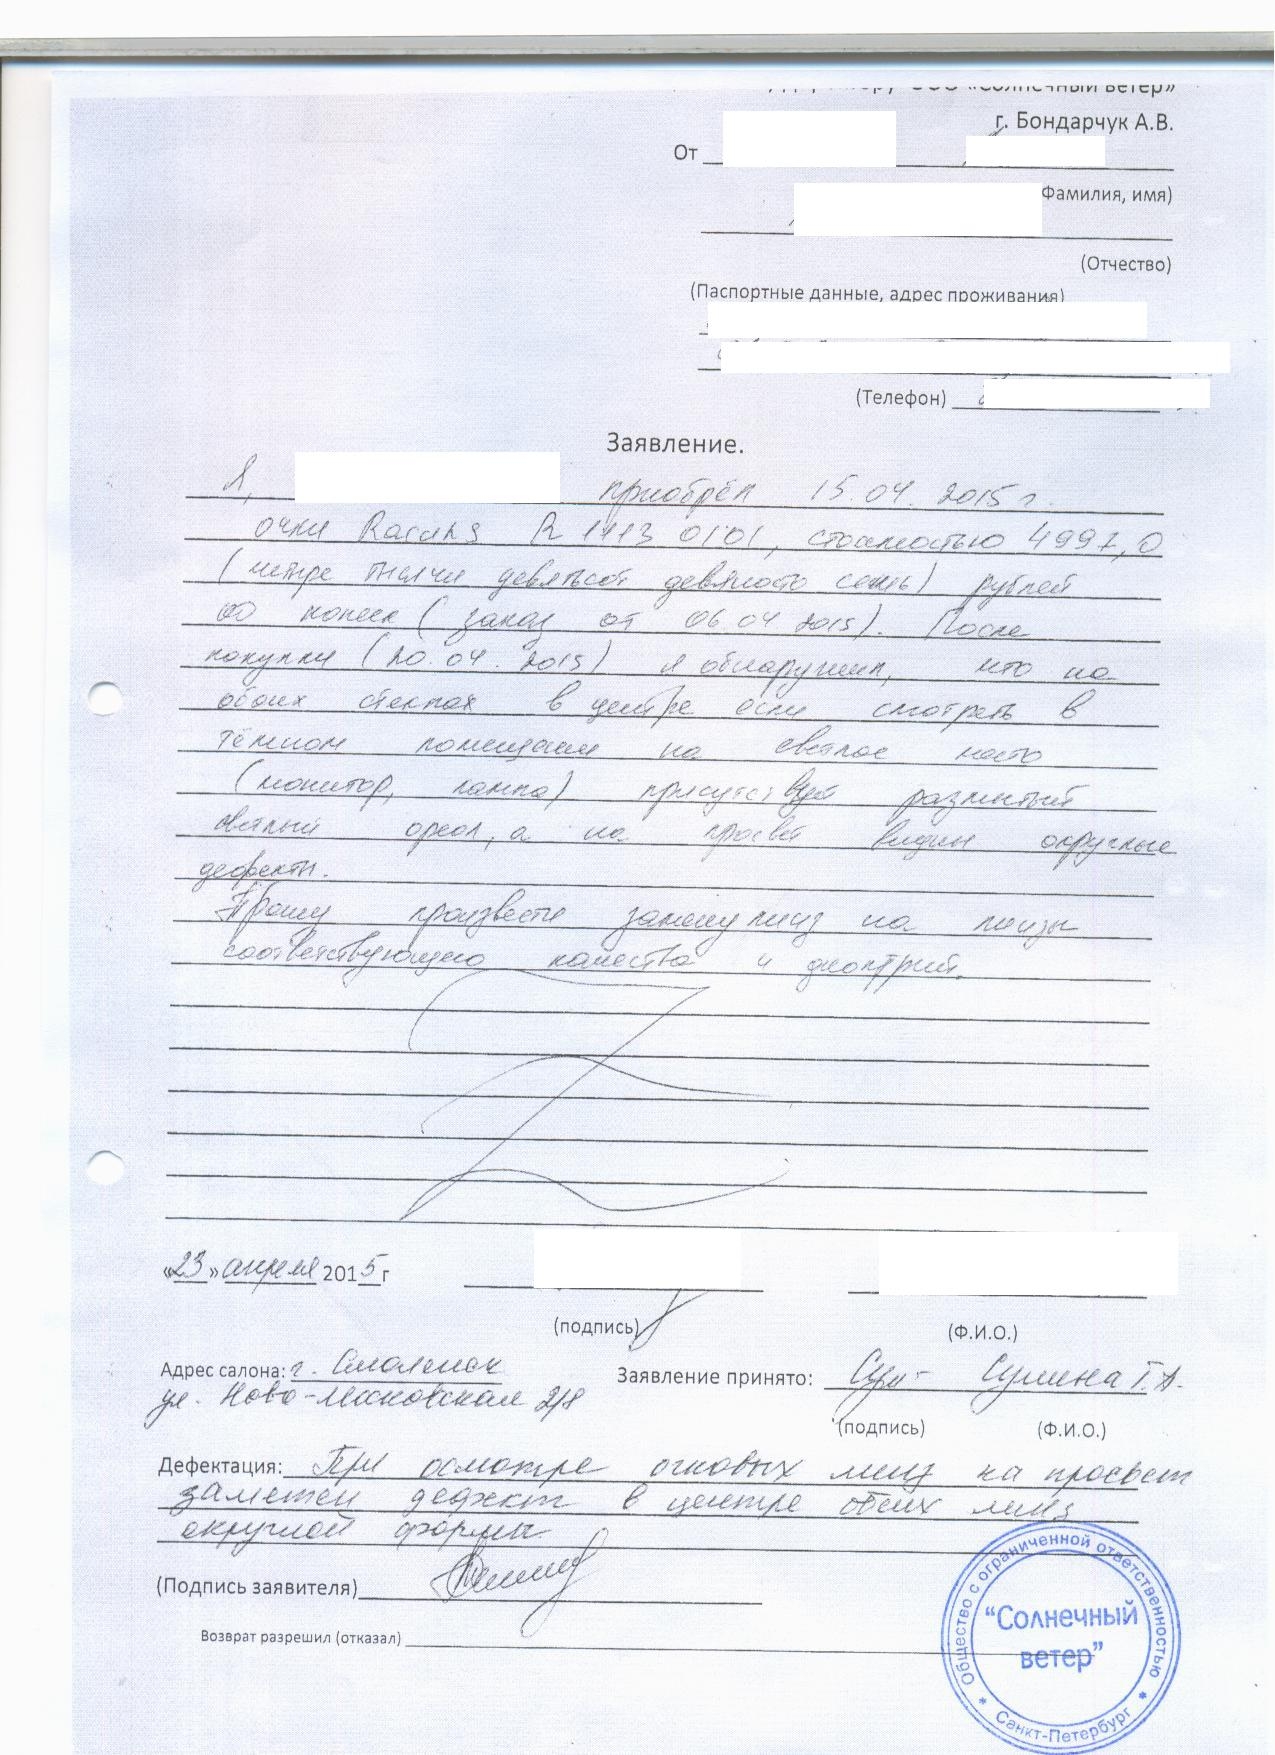 ООО «Солнечный ветер»
г. Бондарчук А.В.
От
Фамилия, имя)
(Отчество)
(Паспортные данные, адрес проживания)
(Телефон)
Заявление.
Я, приобрёл 15.04.2015г.
очки R 1113 0101, стоимостью 4997,0
(четыре тысячи девятьсот девяносто семь) рублей
00 копеек (заказ от 06.04 2015). После
покупки (20.04.2015) я обнаружил, что на
обоих стеклах в центре если смотреть в
тёмном помещении на светлое место
(монитор, лампа) присутствует размытый
светлый ореол, а на просвет видны округлые
дефекты.
Прошу произвести замену линз на линзы
соответствующего качества и диоптрий.
«23» апреля 2015г
(подпись)
(Ф.И.О.)
Адрес салона: г. Смоленск
Заявление принято: Сушина Г.А.
ул. Ново-Московская 2/8
(подпись)
(Ф.И.О.)
Дефектация: При осмотре очковых линз на просвет
заметен дефект в центре обеих линз
округлой формы.
(Подпись заявителя)
Возврат разрешил (отказал)
Общество с ограниченной ответственностью
“Солнечный
ветер”
* Санкт-Петербург *